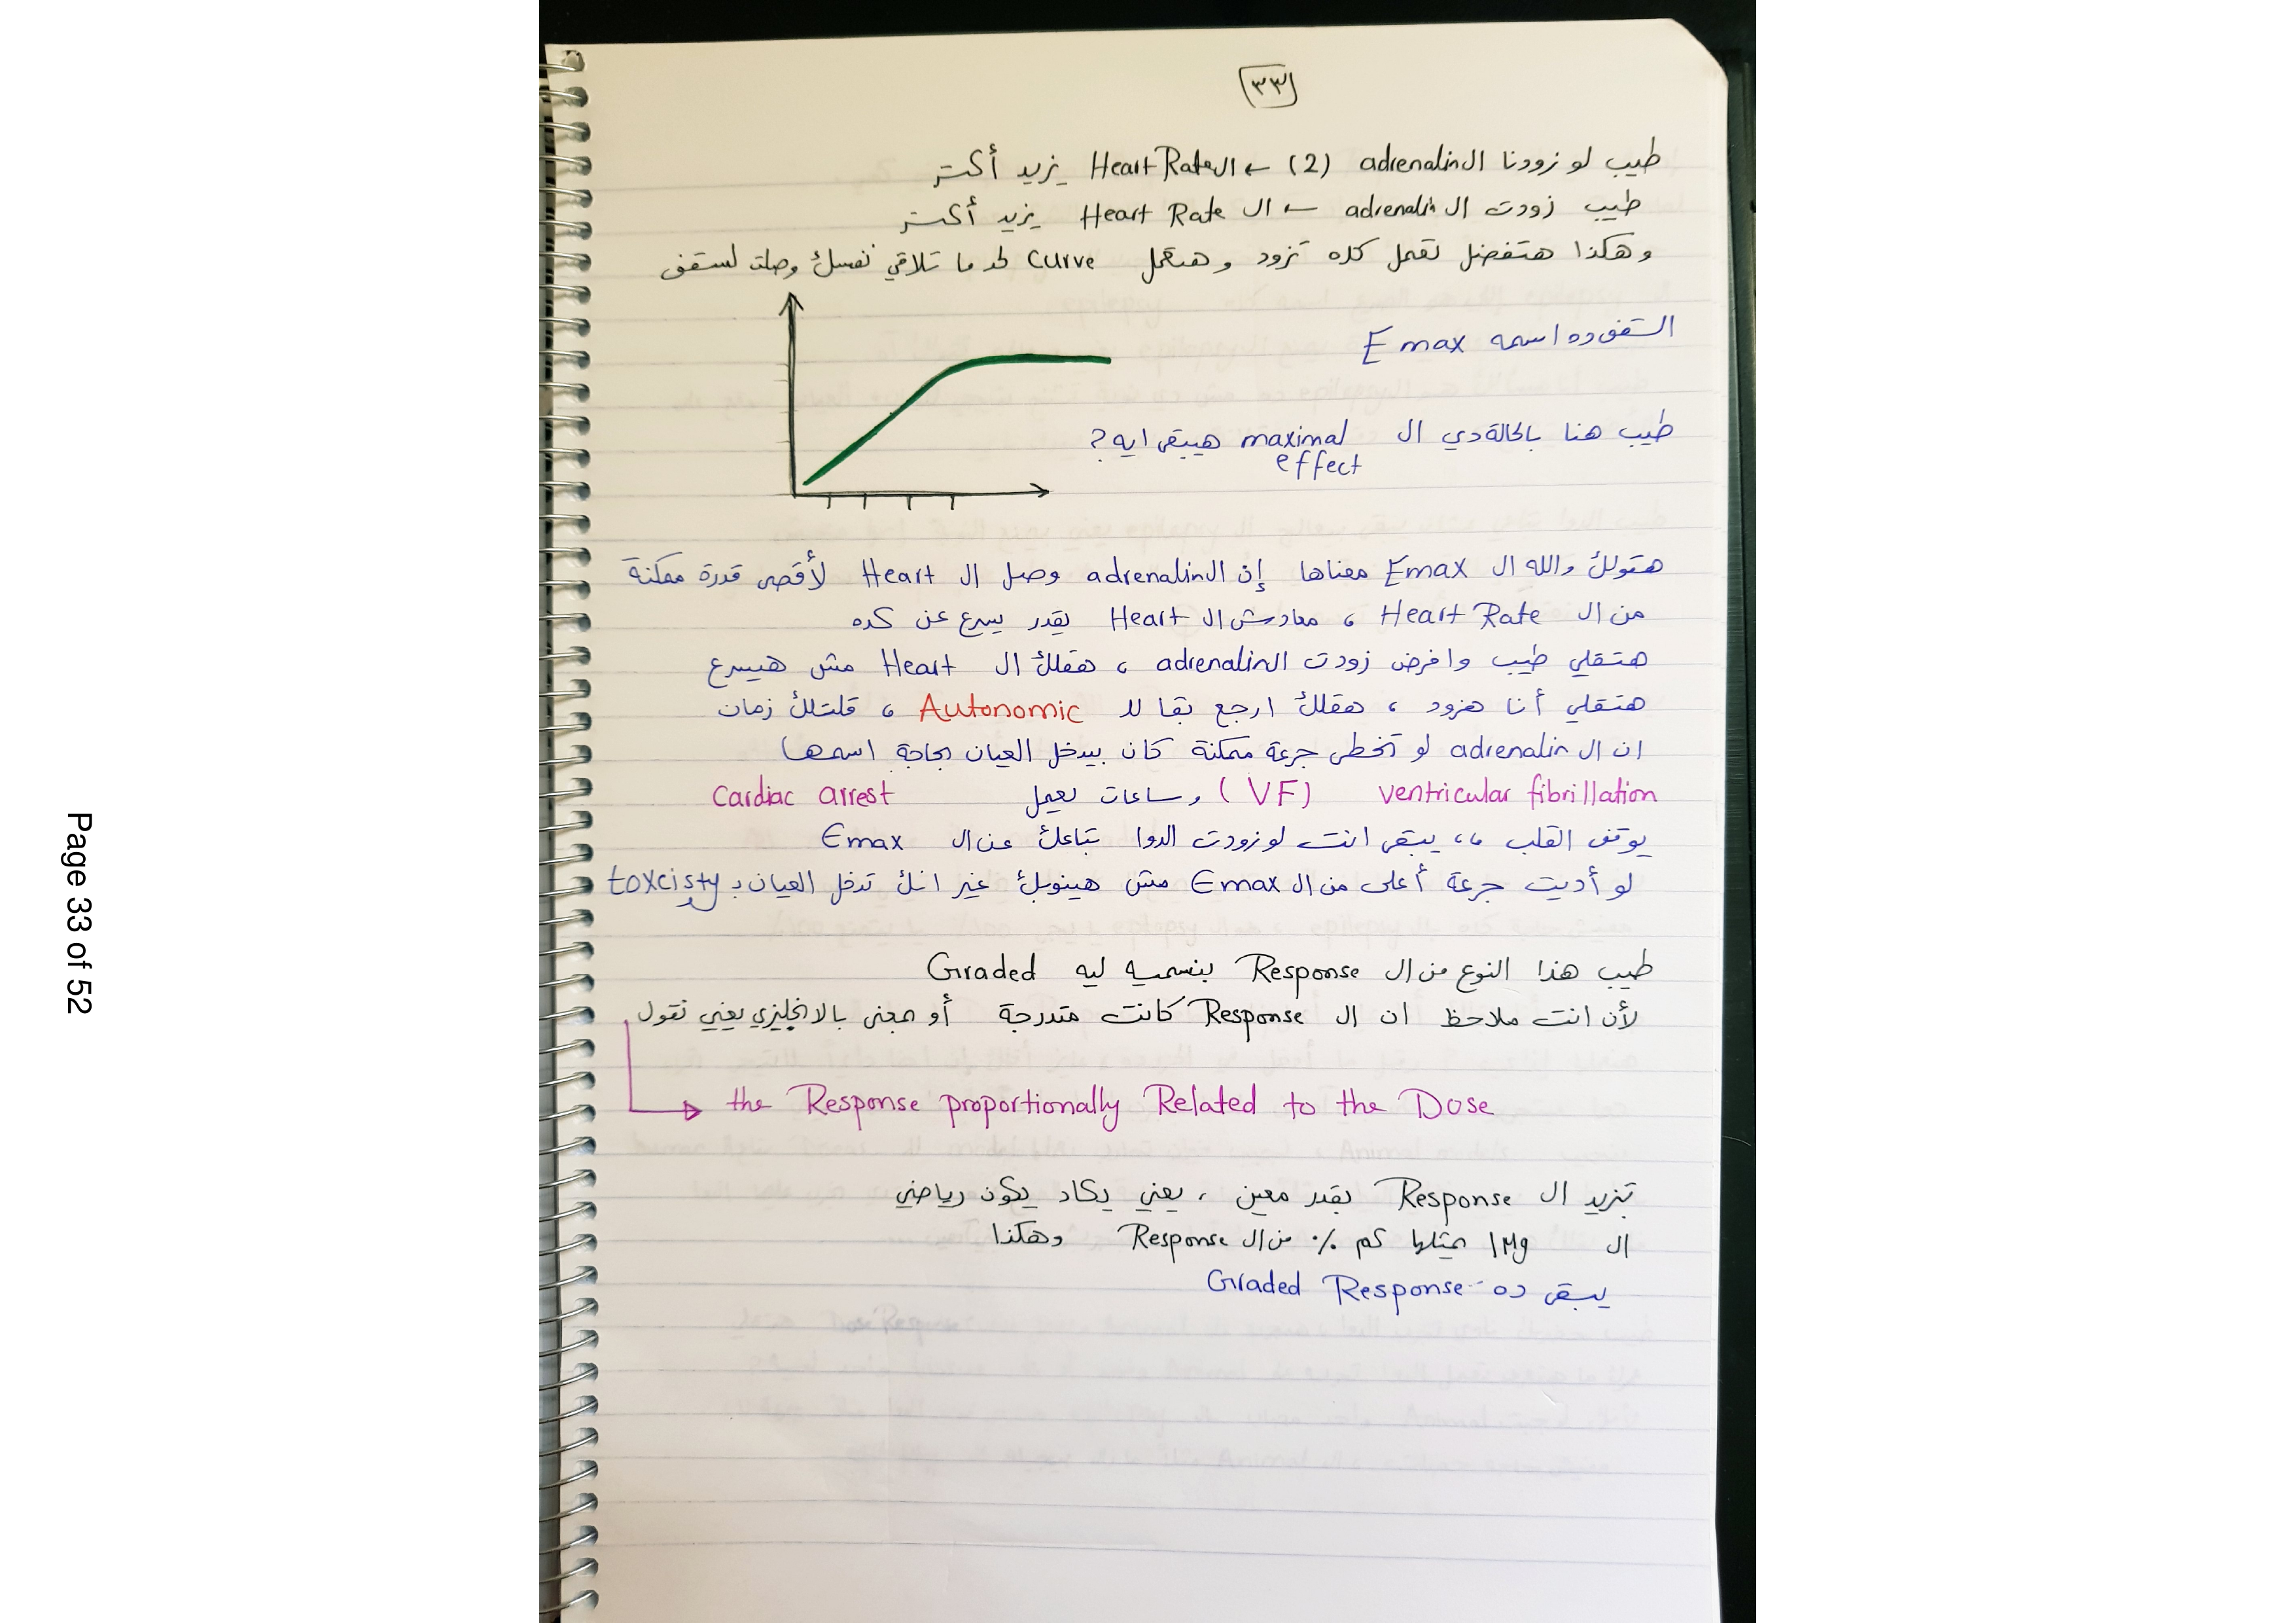 ٣٣
طيب لو زودنا ال adrenalin (2) ← ال Heart Rate يزيد أكتر
طيب زودت ال adrenalin ← ال Heart Rate يزيد أكتر
وهكذا هتفضل تعمل كده تزود وهتعمل curve لحد ما تلاقي نفسك وصلت لسقف
السقف ده اسمه Emax
طيب هنا بالحالة دي ال maximal effect هيبقى ايه?
هتقولك والله ال Emax معناها إن ال adrenalin وصل ال Heart لأقصى قدرة ممكنة
من ال Heart Rate ، معادش ال Heart يقدر يسرع عن كده
هتقلي طيب وافرض زودت ال adrenalin ، هقلك ال Heart مش هيسرع
هتقلي أنا هزود ، هقلك ارجع بقا لل Autonomic ، قلتلك زمان
ان ال adrenalin لو تخطى جرعة ممكنة كان بيدخل العيان بحاجة اسمها
ventricular fibrillation (VF) وساعات يعمل Cardiac arrest
يوقف القلب ،، يبقى انت لو زودت الدوا بتاعك عن ال Emax
لو أديت جرعة أعلى من ال Emax مش هينوبك غير انك تدخل العيان بـ toxcisty
طيب هذا النوع من ال Response بنسميه ليه Graded
لأن انت ملاحظ ان ال Response كانت متدرجة أو بمعنى بالانجليزي يعني نقول
the Response proportionally Related to the Dose
تزيد ال Response بقدر معين ، يعني يكاد يكون رياضي
ال 1Mg بمثلها كم % من ال Response وهكذا
يبقى ده Graded Response
Page 33 of 52